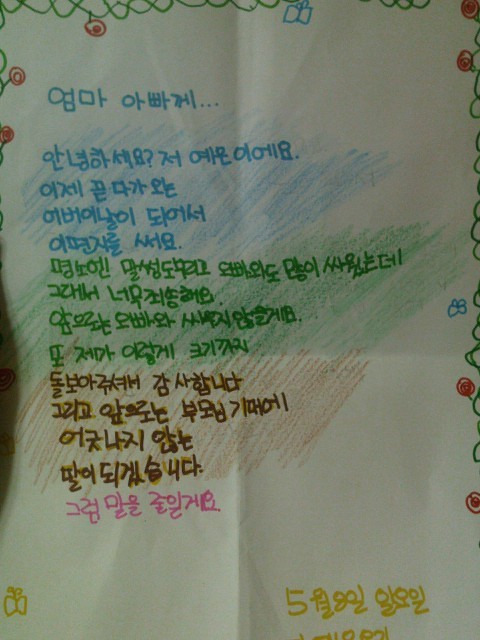 엄마 아빠께...
안녕하세요? 저 예은이에요.
이제 곧 다가오는
어버이날이 되어서
이편지를 써요.
평소엔 말썽도부리고 오빠와도 많이 싸웠는데
그래서 너무죄송해요.
앞으로는 오빠와 싸우지않을게요.
또 저가 이렇게 크기까지
돌보아주셔서 감사합니다
그리고 앞으로는 부모님 기대에
어긋나지 않는
딸이되겠습니다.
그럼 말을 줄일게요.
5월8일 일요일